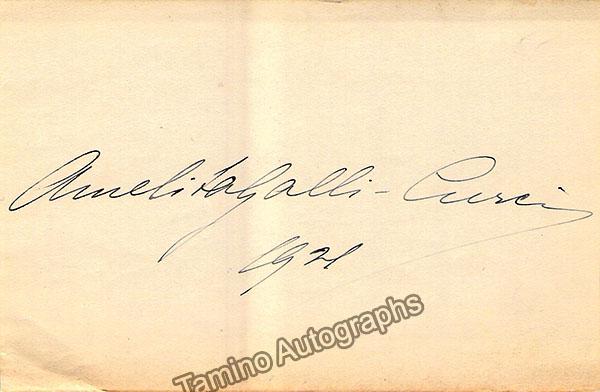 Amelita Galli-Curci
1921
Tamino Autographs